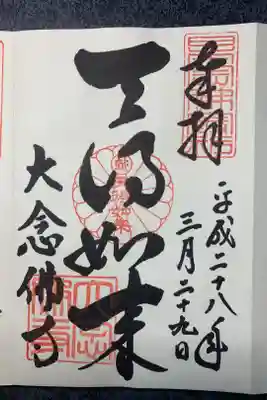 奉拝
平成二十八年
三月二十九日
天得如来
大念佛寺